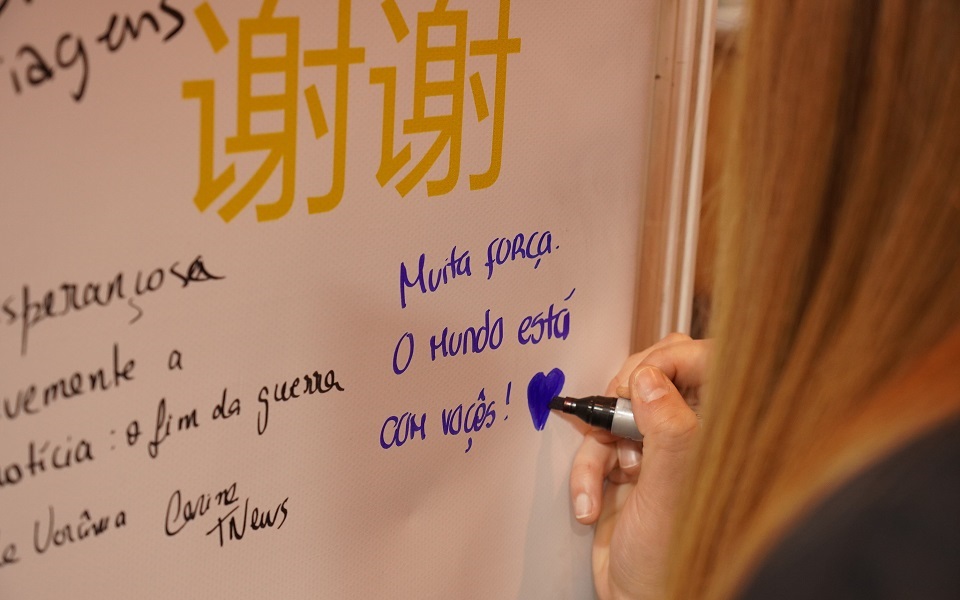 iagens
谢谢
sperançosa
vemente a
notícia : o fim da guerra
Carina
TNews
Muita força.
O Mundo está
com voçês!